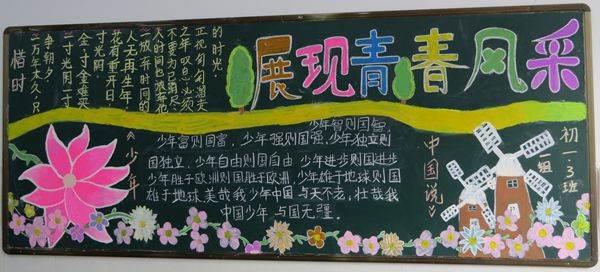 展现青春风采
惜时
一万年太久，只
争朝夕
一寸光阴一寸
金，寸金难买
寸光阴。
花有重开日，
人无再生年
一放弃时间的
人时间也放弃他
不要为已消尽
之年叹息，必须
正视匆匆溜走
的时光。
《少年
中国说》
少年智则国智，
少年富则国富，少年强则国强，少年独立则
国独立，少年自由则国自由 少年进步则国进步
少年胜于欧洲则国胜于欧洲，少年雄于地球则国
雄于地球，美哉我少年中国 与天不老，壮哉我
中国少年 与国无疆。
初一·3班
一组